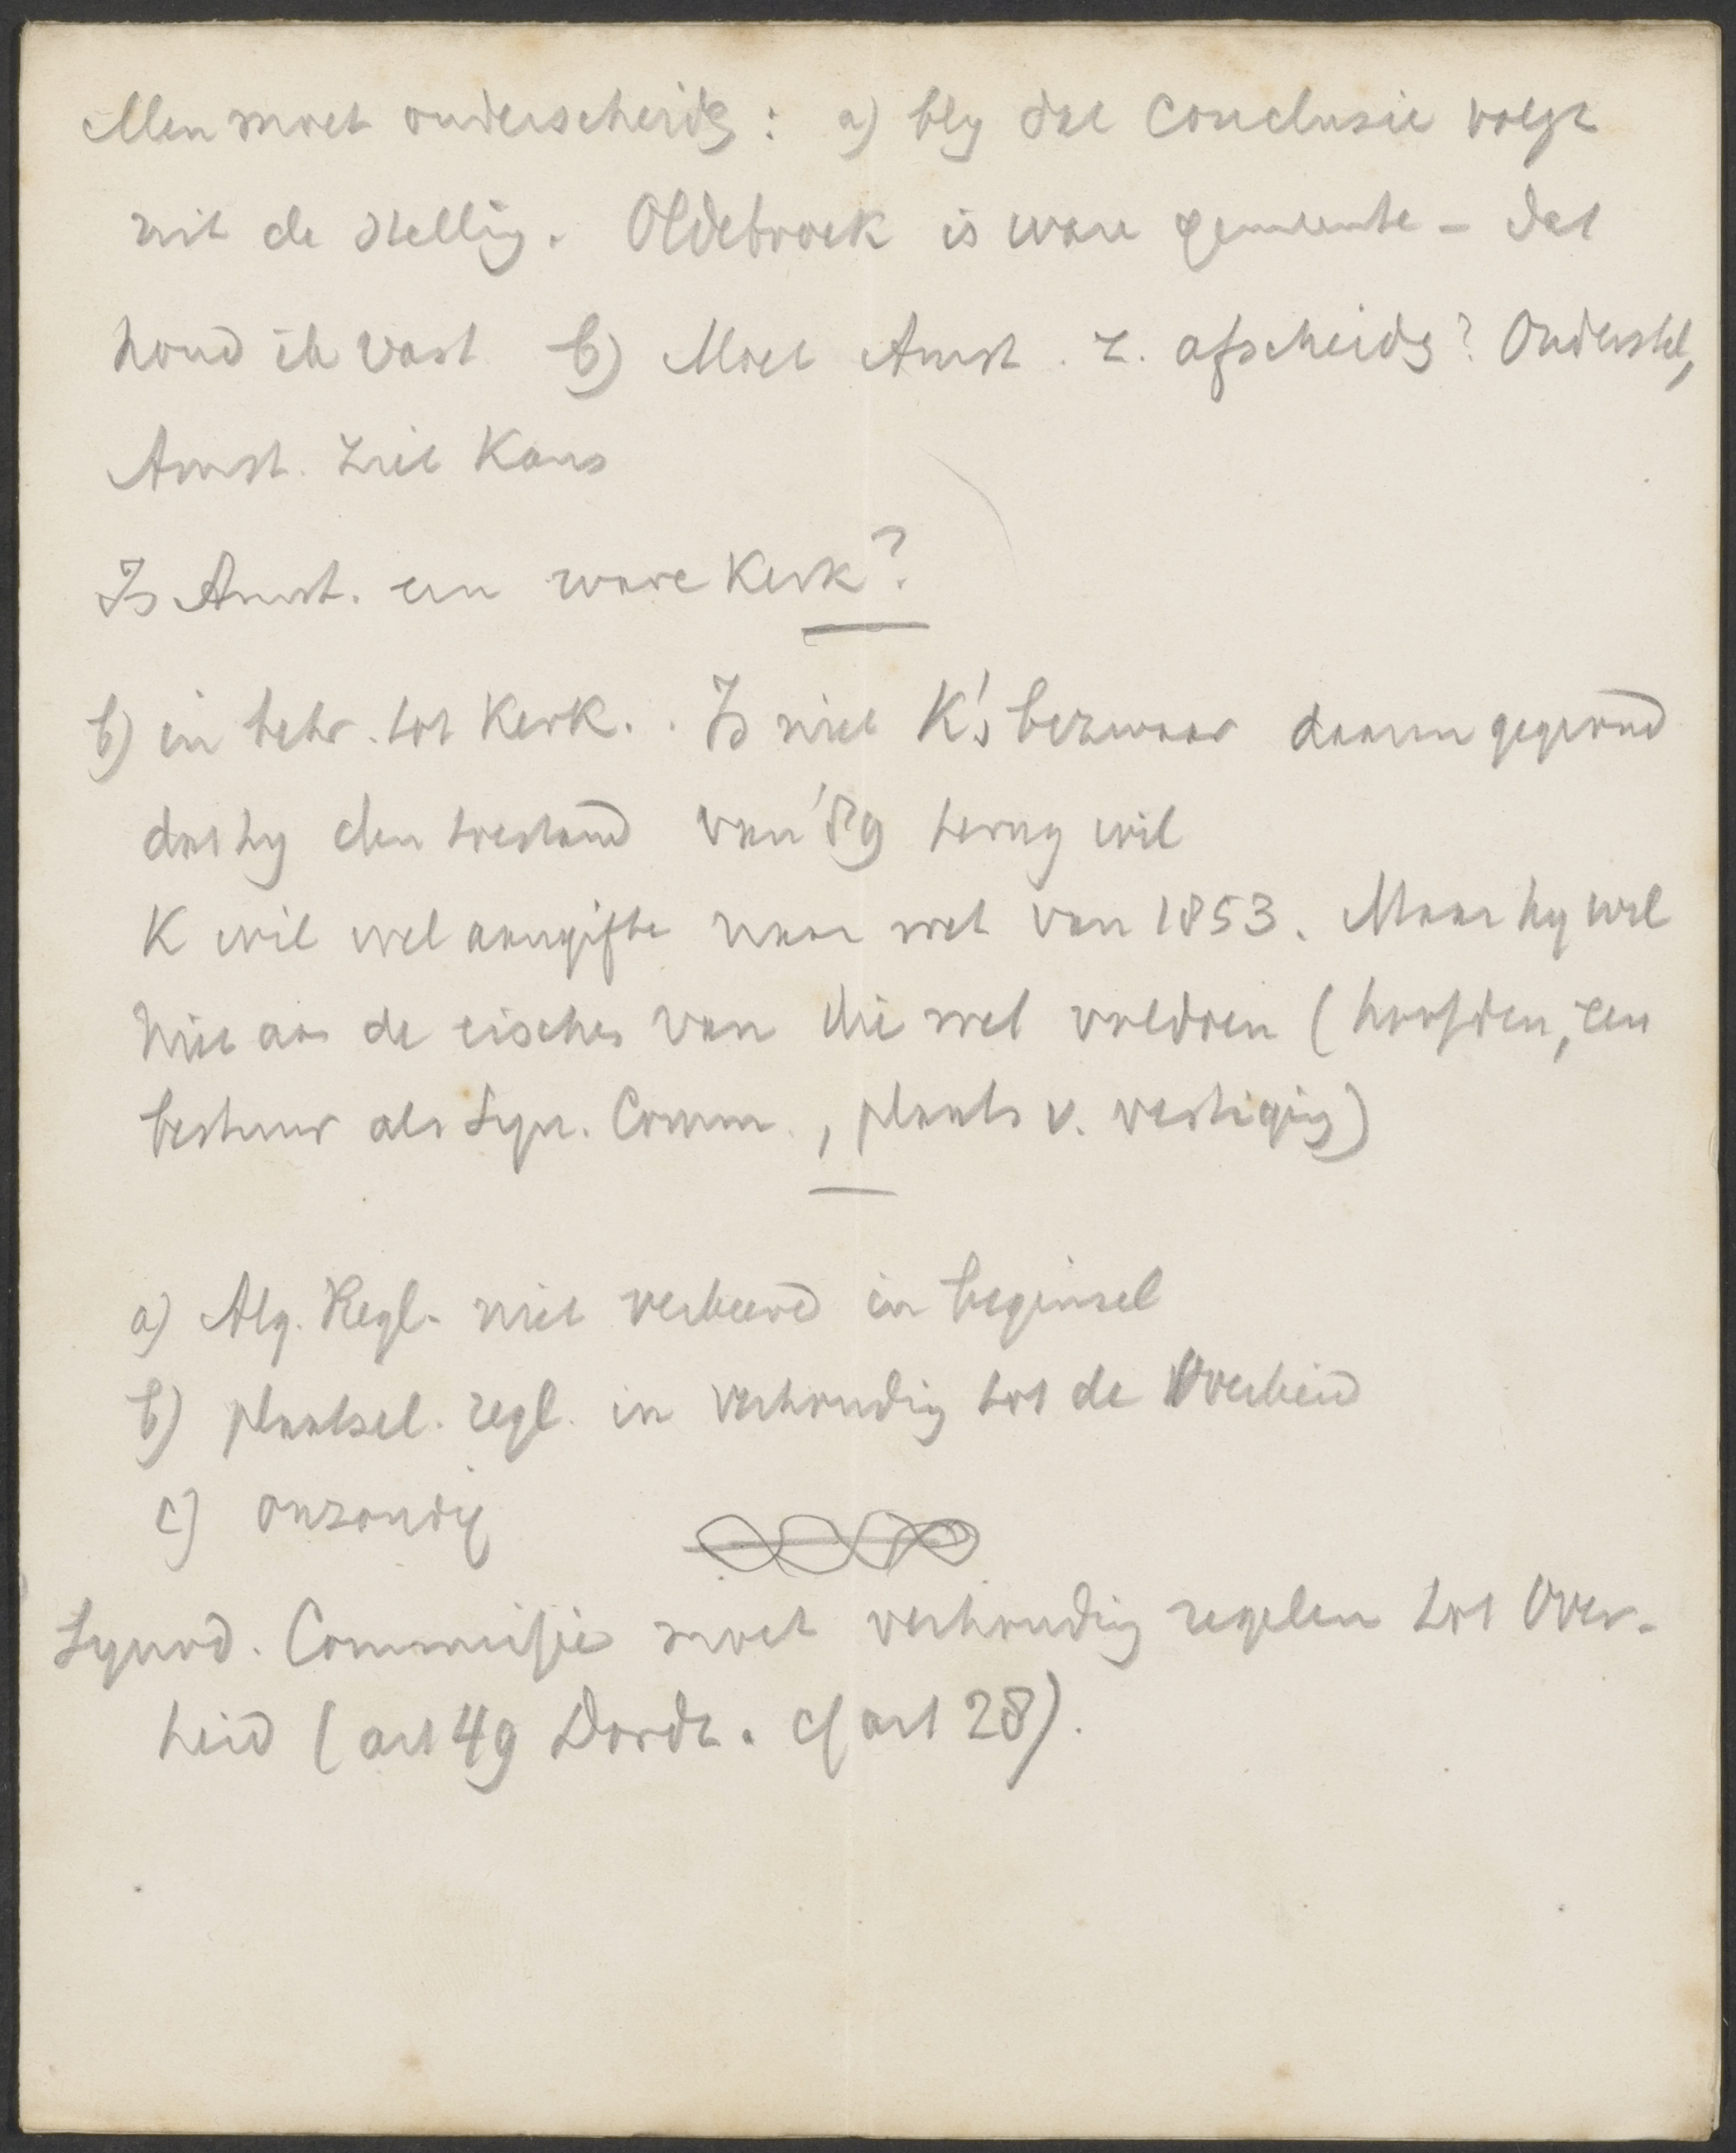 Men moet onderscheidg: a) bly dat conclusie volgt
uit de stellig. Oldebroek is ware gemeente - dat
houd ik vast b) Moet Amst. z. afscheidg? Onderstel,
Amst. ziet Kans
Is Amst. een ware Kerk?
b) in betr. tot Kerk.. Is niet K's bezwaar daarin gegrond
dat hy den toestand van '89 terug wil
K wil wel aangifte naar wet van 1853. Maar hy wil
niet aan de eischen van die wet voldoen (hoofden, een
bestuur als Syn. Comm., plaats v. vestiging)
a) Alg. Regl. niet verkeerd in beginsel
b) plaatsel. regl. in verhoudig tot de Overheid
c) onzondig
Synod. Commissie moet verhoudig regelen tot Over-
heid (art 49 Dordt. cf art 28).